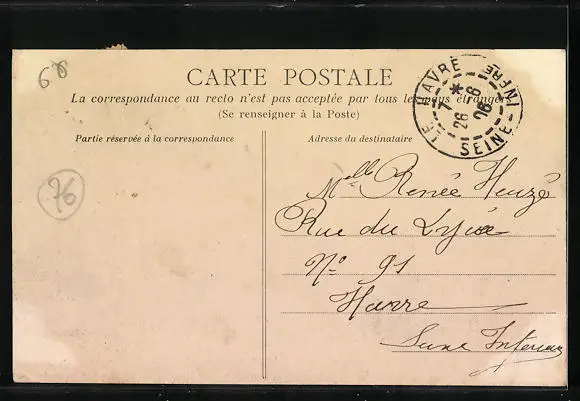 68
CARTE POSTALE
La correspondance au recto n'est pas acceptée par tous les pays étrangers
(Se renseigner à la Poste)
LE HAVRE
7 *
26 - 8
06
SEINE-INFRE
Partie réservée à la correspondance
Adresse du destinataire
76
Melle Renée Heuzé
Rue du Lycée
No 91
Havre
Seine Inferieu